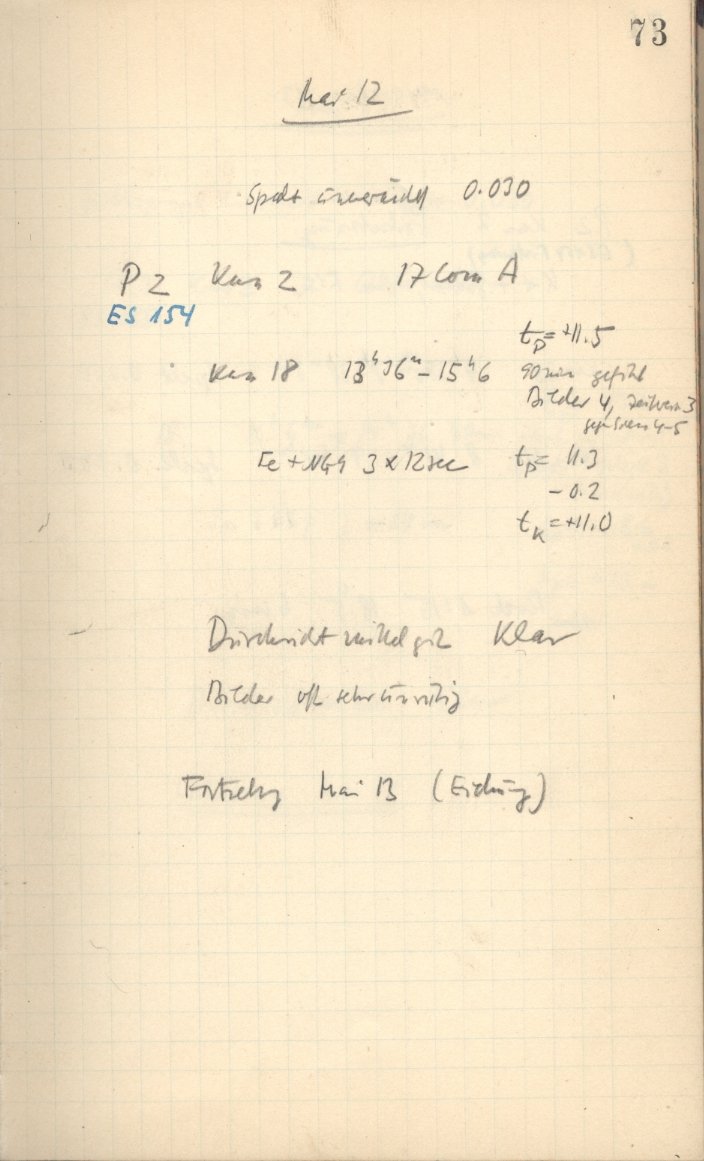 73
Mai 12
Spalt unverändert 0.030
P 2 Kam 2 17 Com A
ES 154
t_P = +11.5
Kam 18 13ʰ36ᵐ – 15ʰ6 90 min geführt
Bilder 4, zeitw. 3
4-5
Fe + 3 x 12 sec t_P = 11.3
- 0.2
t_K = +11.0
Durchsicht mittelgut Klar
Bilder oft sehr unruhig
Fortsetzg Mai 13 (Eichung)